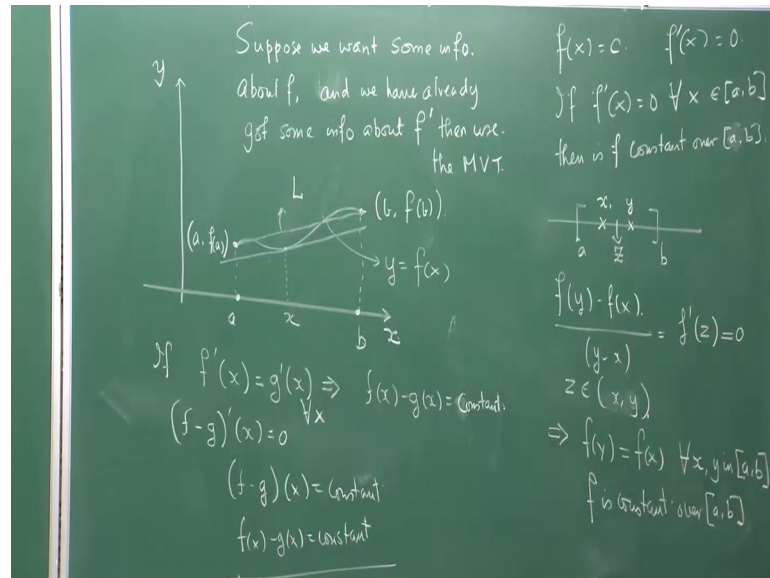 Suppose we want some info.
about f, and we have already
got some info about f' then use.
the MVT.
y
L
(a, f(a))
(b, f(b))
y = f(x)
a
x
b
x
If f'(x) = g'(x) ⇒ f(x) - g(x) = constant.
∀x
(f-g)'(x) = 0
(f-g)(x) = constant
f(x) - g(x) = constant
f(x) = C. f'(x) = 0.
If f'(x) = 0 ∀ x ∈ [a,b]
then is f constant over [a,b].
x, y
a z b
f(y) - f(x).
(y-x)
= f'(z) = 0
z ∈ (x, y)
⇒ f(y) = f(x) ∀x, y in [a,b]
f is constant over [a,b]